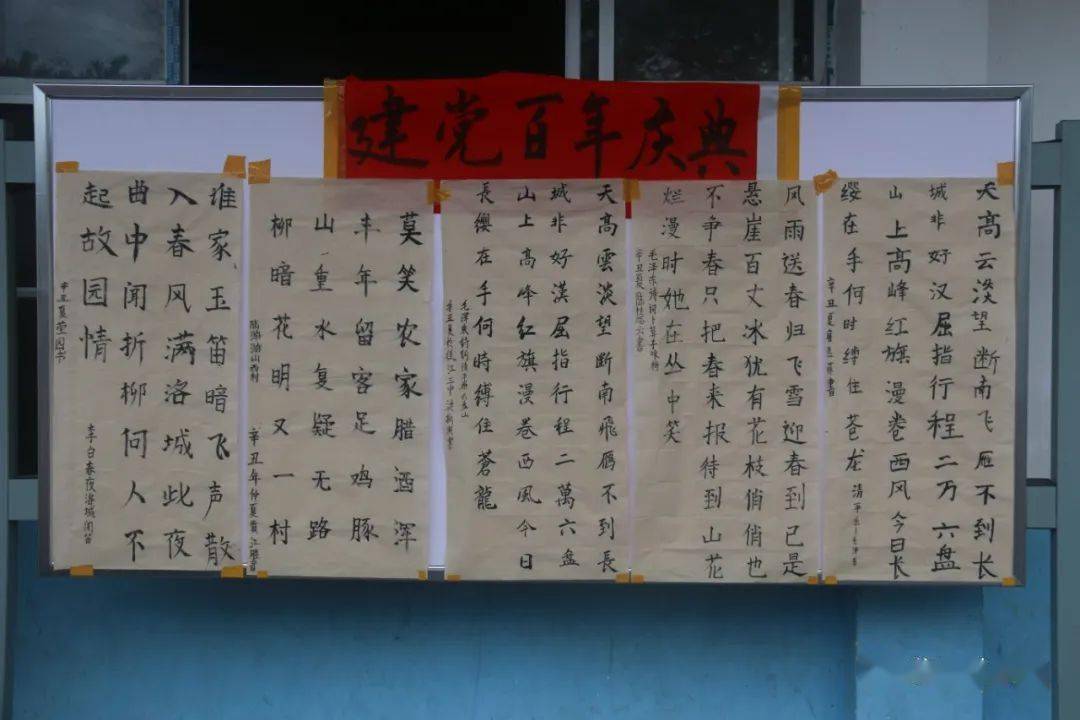 建党百年庆典
天高云淡望断南飞雁不到长
城非好汉屈指行程二万六盘
山上高峰红旗漫卷西风今日长
缨在手何时缚住苍龙
清平乐
辛丑夏
风雨送春归飞雪迎春到已是
悬崖百丈冰犹有花枝俏俏也
不争春只把春来报待到山花
烂漫时她在丛中笑
毛泽东诗词卜算子咏梅
辛丑夏
天高雲淡望断南飛雁不到長
城非好漢屈指行程二萬六盘
山上高峰红旗漫卷西風今日
長缨在手何時縛住蒼龍
毛澤東詩詞清平樂六盘山
辛丑夏
莫笑农家腊酒浑
丰年留客足鸡豚
山重水复疑无路
柳暗花明又一村
陆游游山西村
辛丑年仲夏
谁家玉笛暗飞声散
入春风满洛城此夜
曲中闻折柳何人不
起故园情
李白春夜洛城闻笛
辛丑夏